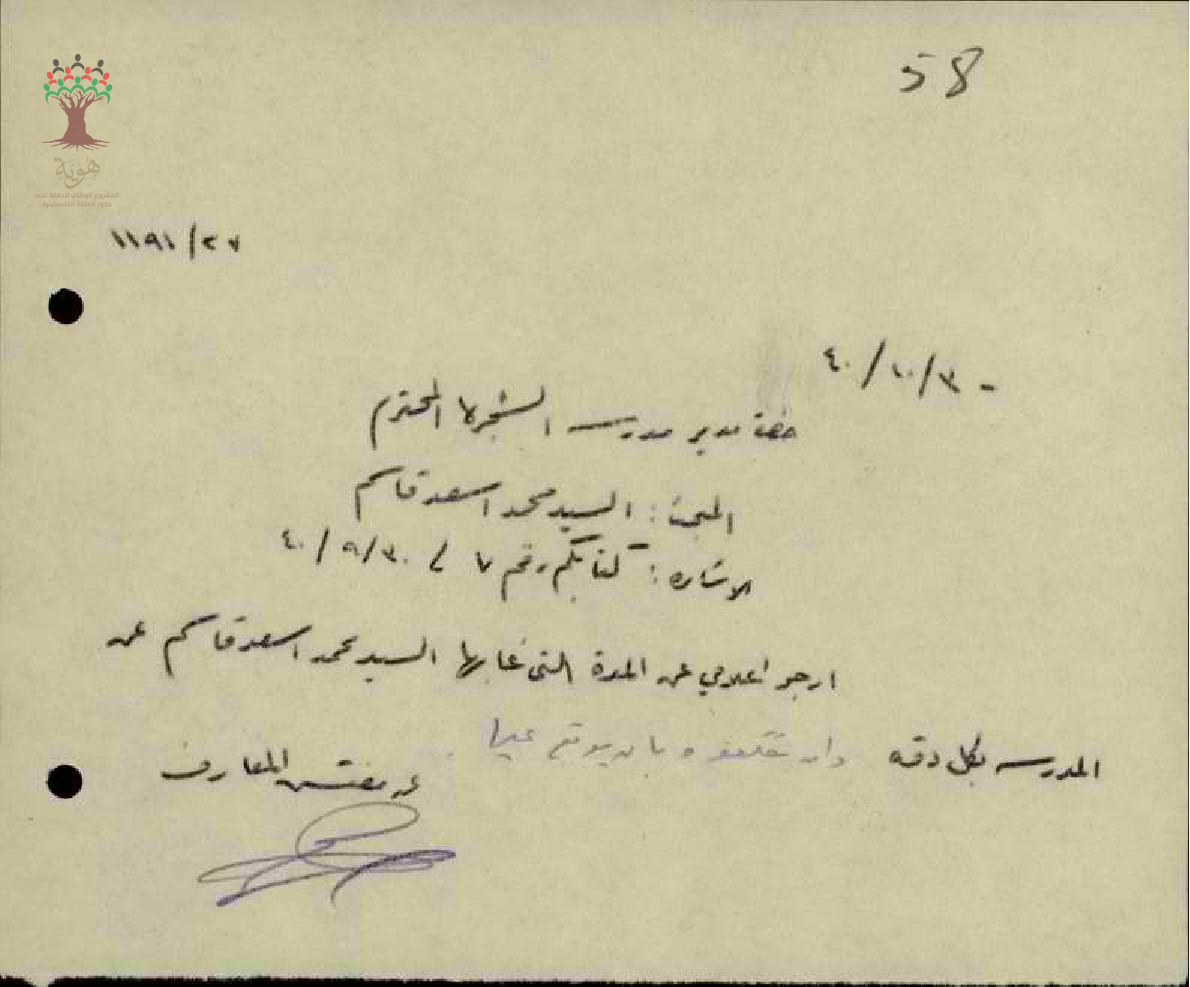 58
هوية
المشروع الوطني للحفاظ على
جذور العائلة الفلسطينية
١١٩١/٢٧
٤٠/١٠/٣٠
حضرة مدير مدرسة الشجرة المحترم
المبحث: السيد محمد اسعد قاسم
الاشارة: كتابكم رقم ٧ في ٤٠/٩/٣٠
ارجو اعلامي عن المدة التي غابها السيد محمد اسعد قاسم عن
المدرسه بكل دقه وان تكلفوه بان يوقع عليها
عن مفتش المعارف